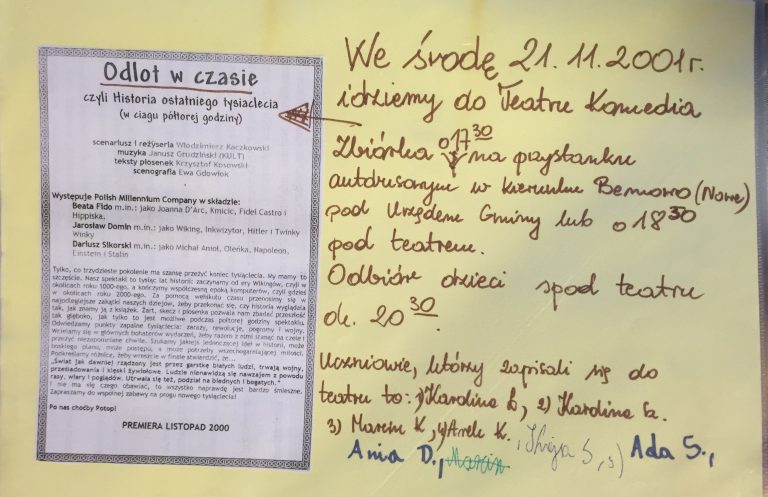 Odlot w czasie
czyli Historia ostatniego tysiąclecia
(w ciągu półtorej godziny)
scenariusz i reżyseria Włodzimierz Kaczkowski
muzyka Janusz Grudziński (KULT)
teksty piosenek Krzysztof Kosowski
scenografia Ewa Gdowiok
Występuje Polish Millennium Company w składzie:
Beata Fido m.in.: jako Joanna D'Arc, Kmicic, Fidel Castro i
Hippiska,
Jarosław Domin m.in.: jako Wiking, Inkwizytor, Hitler i Twinky
Winky
Dariusz Sikorski m.in.: jako Michał Anioł, Oleńka, Napoleon,
Einstein i Stalin
Tylko, co trzydzieste pokolenie ma szansę przeżyć koniec tysiąclecia. My mamy to
szczęście. Nasz spektakl to tysiąc lat historii: zaczynamy od ery Wikingów, czyli w
okolicach roku 1000-ego, a kończymy współczesną epoką komputerów, czyli gdzieś
w okolicach roku 2000-ego. Za pomocą wehikułu czasu przenosimy się w
najodleglejsze zakątki naszych dziejów, żeby przekonać się, czy historia wyglądała
tak, jak znamy ją z książek. Żart, skecz i piosenka pozwala nam zbadać przeszłość
tak głęboko, jak tylko to jest możliwe podczas półtorej godziny spektaklu.
Odwiedzamy punkty zapalne tysiąclecia: zarazy, rewolucje, pogromy i wojny.
Wcielamy się w głównych bohaterów wydarzeń, żeby razem z nimi stanąć na czele i
przeżyć niezapomniane chwile. Szukamy jakiejś jednoczącej idei w historii, może
boskiego planu, może postępu, a może potrzeby wszechogarniającej miłości.
Podkreślamy różnice, żeby wreszcie w finale stwierdzić, że...
"Świat jak dawniej rządzony jest przez garstkę białych ludzi, trwają wojny,
prześladowania i klęski żywiołowe. Ludzie nienawidzą się nawzajem z powodu
rasy, wiary i poglądów. Utrwala się też, podział na biednych i bogatych."
I nie ma się czego obawiać, to wszystko naprawdę jest bardzo śmieszne.
Zapraszamy do wspólnej zabawy na progu nowego tysiąclecia!
Po nas choćby Potop!
PREMIERA LISTOPAD 2000
We środę 21.11.2001r.
idziemy do Teatru Komedia
Zbiórka o 17 30 na przystanku
autobusowym w kierunku Bemowo (Nowe)
pod Urzędem Gminy lub o 18 30
pod teatrem.
Odbiór dzieci spod teatru
ok. 20 30.
Uczniowie, którzy zapisali się do
teatru to: 1) Karolina Ł, 2) Karolina Sz.
3) Marcin K, 4) Arek K.
Ania D., Marcin, 5) Ada S.,